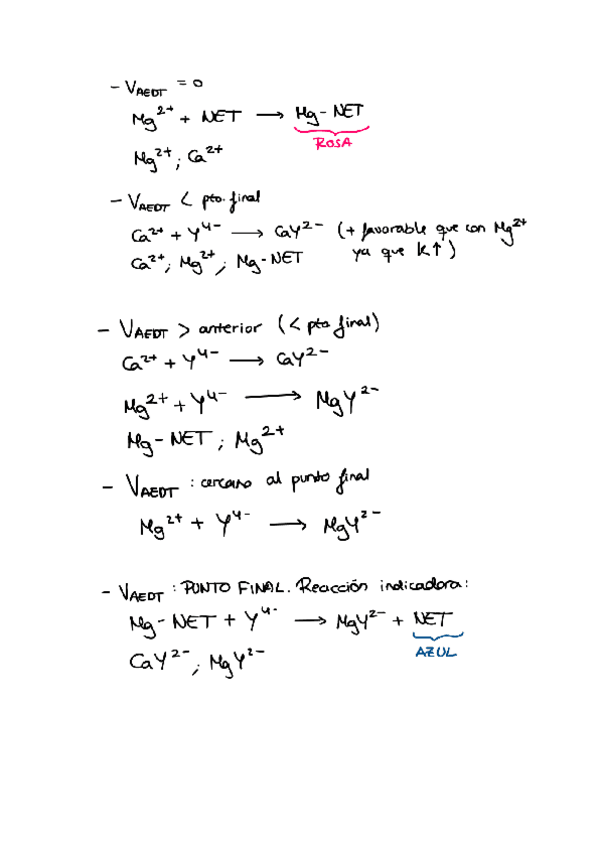 - V_AEDT = 0
Mg²⁺ + NET → Mg-NET
ROSA
Mg²⁺; Ca²⁺
- V_AEDT < pto. final
Ca²⁺ + Y⁴⁻ → CaY²⁻ (+ favorable que con Mg²⁺
Ca²⁺; Mg²⁺; Mg-NET ya que K↑)
- V_AEDT > anterior (< pto final)
Ca²⁺ + Y⁴⁻ → CaY²⁻
Mg²⁺ + Y⁴⁻ → MgY²⁻
Mg-NET; Mg²⁺
- V_AEDT : cercano al punto final
Mg²⁺ + Y⁴⁻ → MgY²⁻
- V_AEDT : PUNTO FINAL. Reacción indicadora:
Mg-NET + Y⁴⁻ → MgY²⁻ + NET
AZUL
CaY²⁻; MgY²⁻